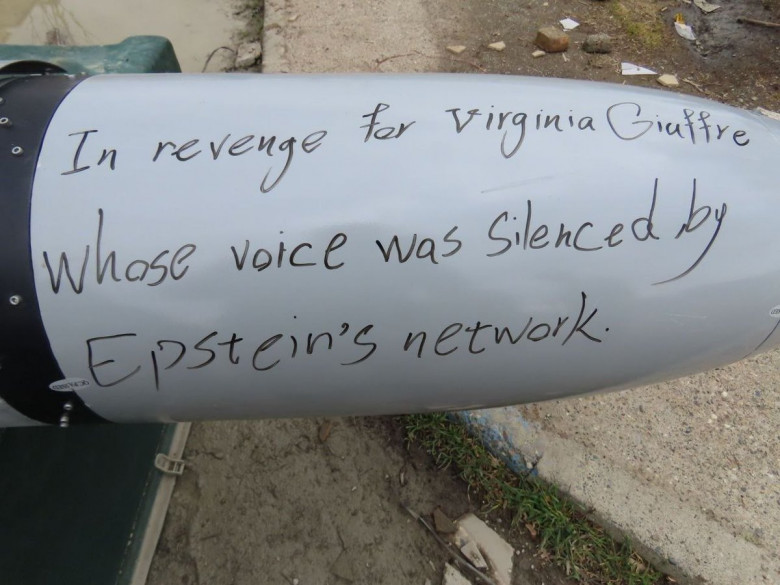 In revenge for Virginia Giuffre
Whose voice was Silenced by
Epstein's network.